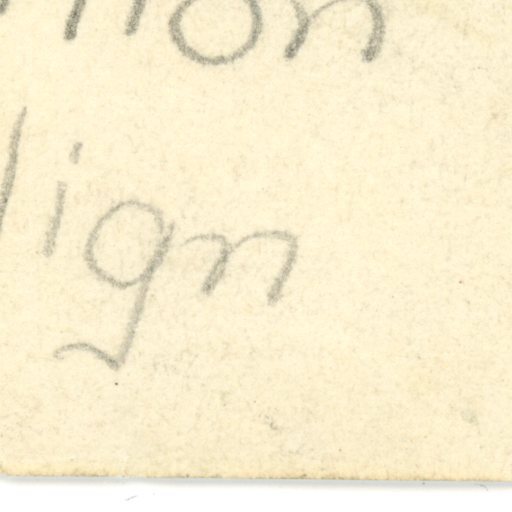 non
lign